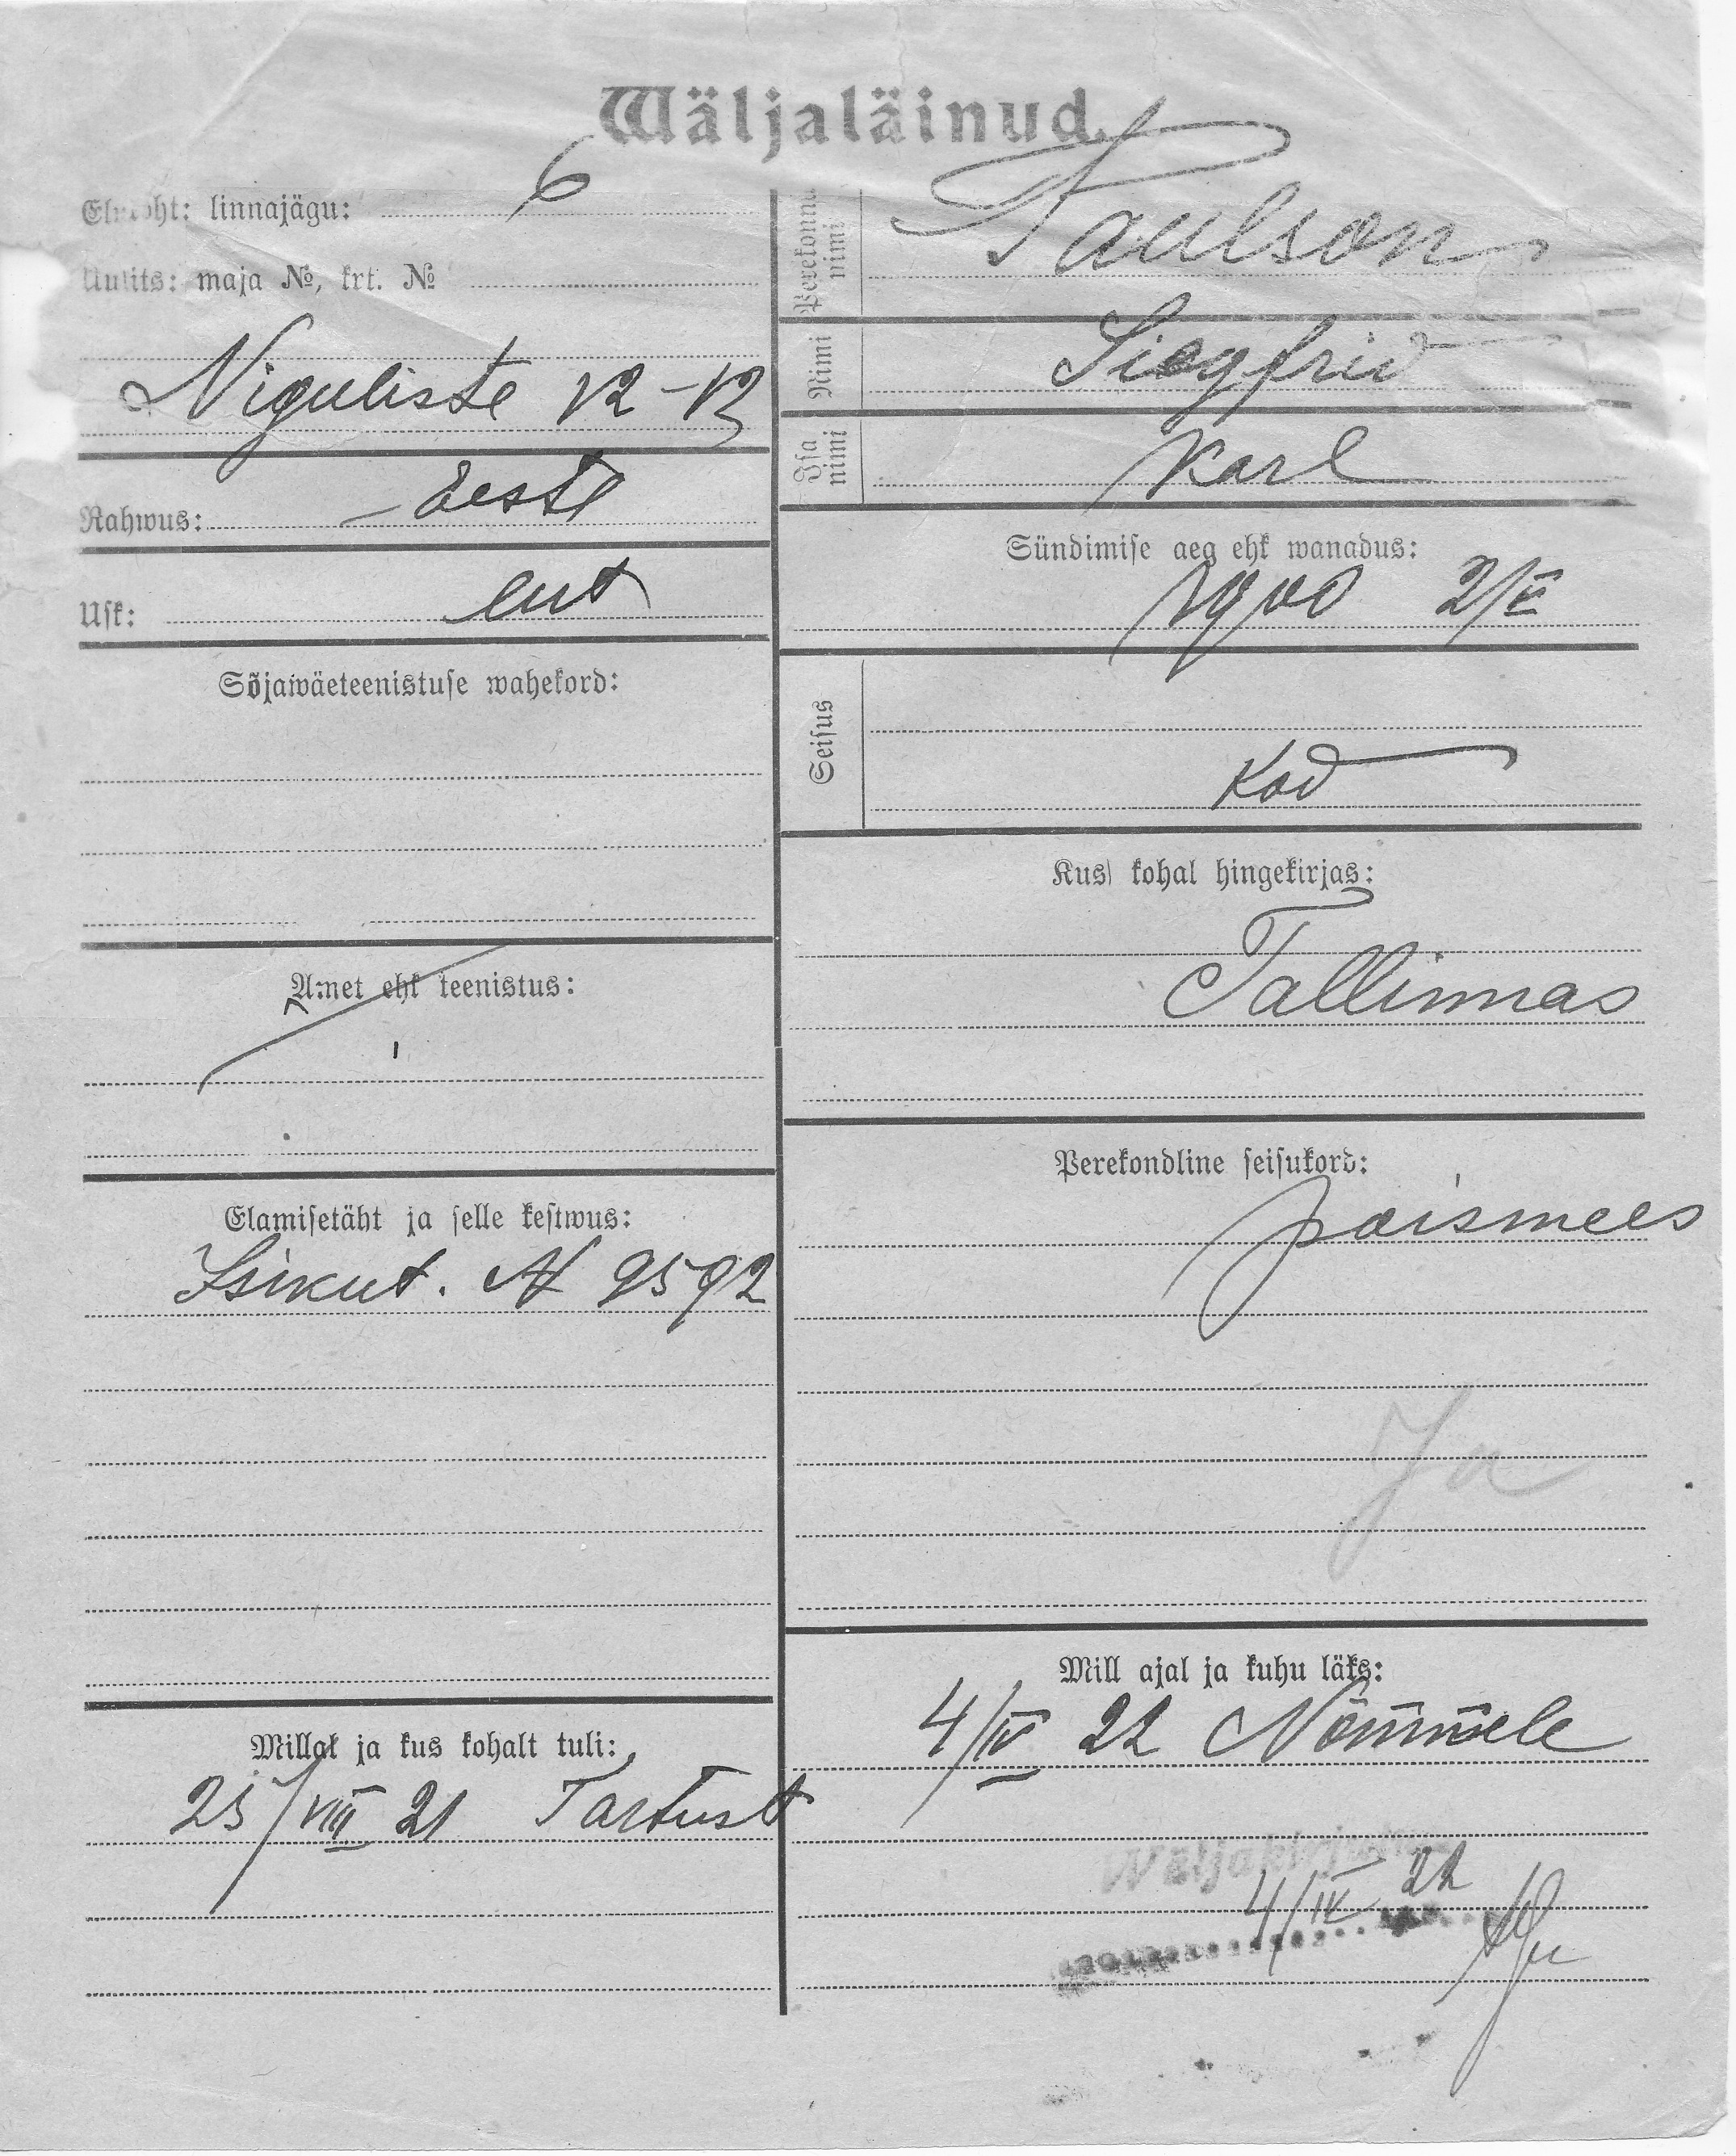 Wäljaläinud.
Elukoht: linnajägu: 6
Uulits: maja №, krt. №
Niguliste 12-12
Rahwus: Eesti
Usk: lut
Sõjawäeteenistuse wahekord:
Amet ehk teenistus:
Elamisetäht ja selle kestwus:
Isikut. N 9592
Millal ja kus kohalt tuli:
25/VIII 21 Tartust
Perekonna nimi Paulson
Nimi Siegfrid
Isa nimi Karl
Sündimise aeg ehk wanadus:
1900 2/V
Seisus
Kod
Kus kohal hingekirjas:
Tallinnas
Perekondline seisukord:
poismees
Mill ajal ja kuhu läks:
4/IV 22 Nõmmele
4/IV 22